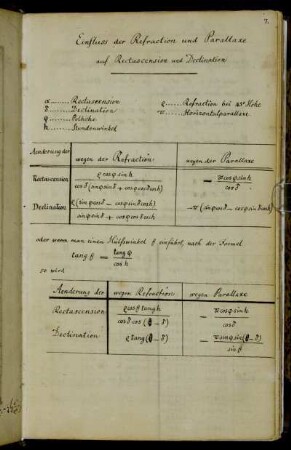 7.
Einfluss der Refraction und Parallaxe
auf Rectascension und Declination
α ...... Rectascension
δ ...... Declination
φ ...... Polhöhe
h ...... Stundenwinkel
ρ ...... Refraction bei 45° Höhe
π ...... Horizontalparallaxe
Aenderung der | wegen der Refraction | wegen der Parallaxe
Rectascension | ρ cosφ sinh / cosδ (sinφ sinδ + cosφ cosδ cosh) | – π cosφ sinh / cosδ
Declination | ρ (sinφ cosδ – cosφ sinδ cosh) / sinφ sinδ + cosφ cosδ cosh | – π (sinφ cosδ – cosφ sinδ cosh)
oder wenn man einen Hülfswinkel θ einführt, nach der Formel
tang θ = tang φ / cos h
so wird
Aenderung der | wegen Refraction | wegen Parallaxe
Rectascension | ρ cosθ tang h / cosδ cos (θ – δ) | – π cosφ sinh / cosδ
Declination | ρ tang (θ – δ) | – π sinφ sin (θ – δ) / sin θ